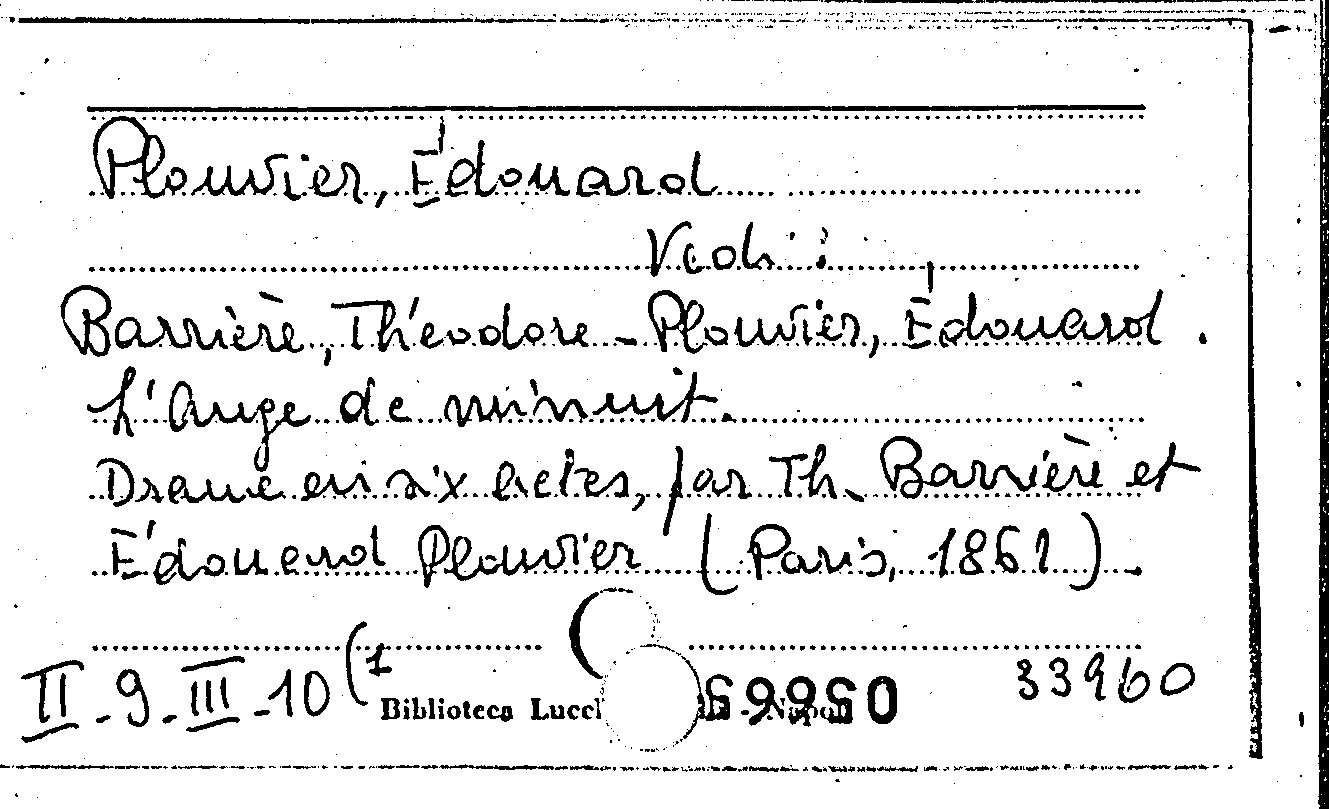 Plouvier, Édouard
Vedi:
Barrière, Théodore - Plouvier, Édouard.
L'Ange de minuit.
Drame en six actes, par Th. Barrière et
Édouard Plouvier (Paris, 1861).
II-9-III-10(1
Biblioteca
33960